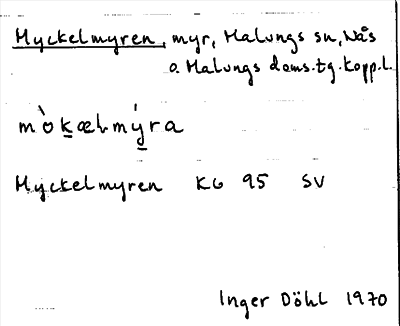 Myckelmyren, myr, Malungs sn, Nås
o. Malungs doms.tg. kopp.l.
mòkælmýra
Myckelmyren KG 95 SV
Inger Döhl 1970